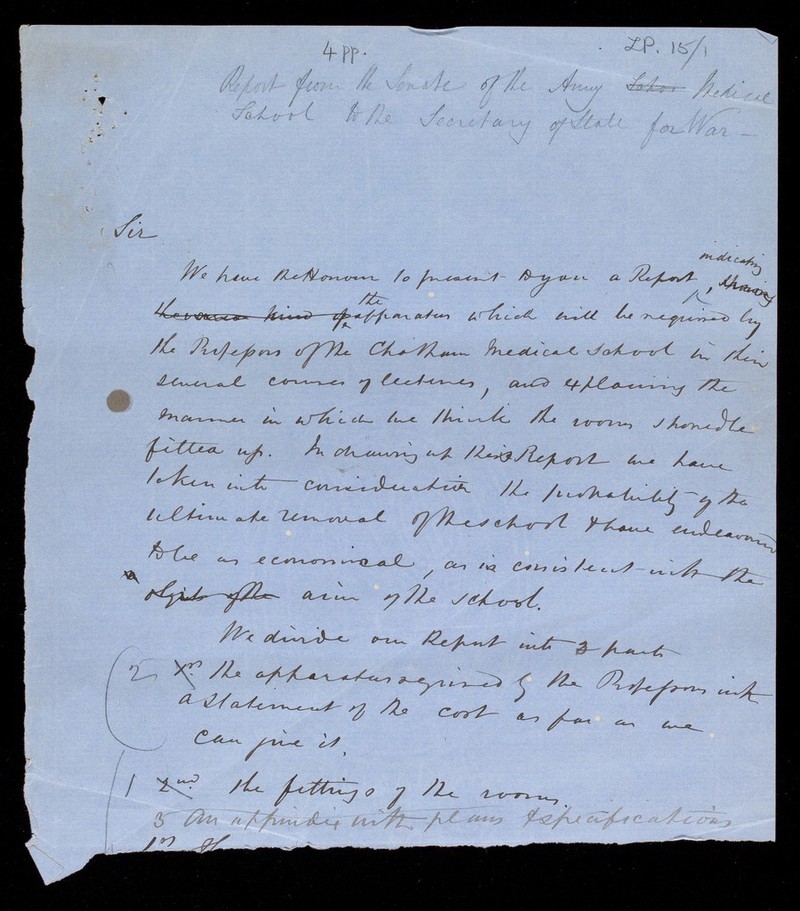 4 pp.
LP. 15/1
Report from the Senate of the Army School Medical
School to the Secretary of State for War -
Sir
We have the Honour to present to you a Report, indicating
the various kind of the apparatus which will be required by
the Professors of the Chatham Medical School in their
several courses of lectures, and explaining the
manner in which we think the rooms should be
fitted up. In drawing up this Report we have
taken into consideration the probability of the
ultimate removal of the school & have endeavoured
to be as economical, as is consistent with the
object of the aim of the school.
We divide our Report into 3 parts
2 1st the apparatus required by the Professors with
a statement of the cost as far as we
can give it.
1 2nd. the fittings of the rooms
3 An appendix with plans & specifications
1st